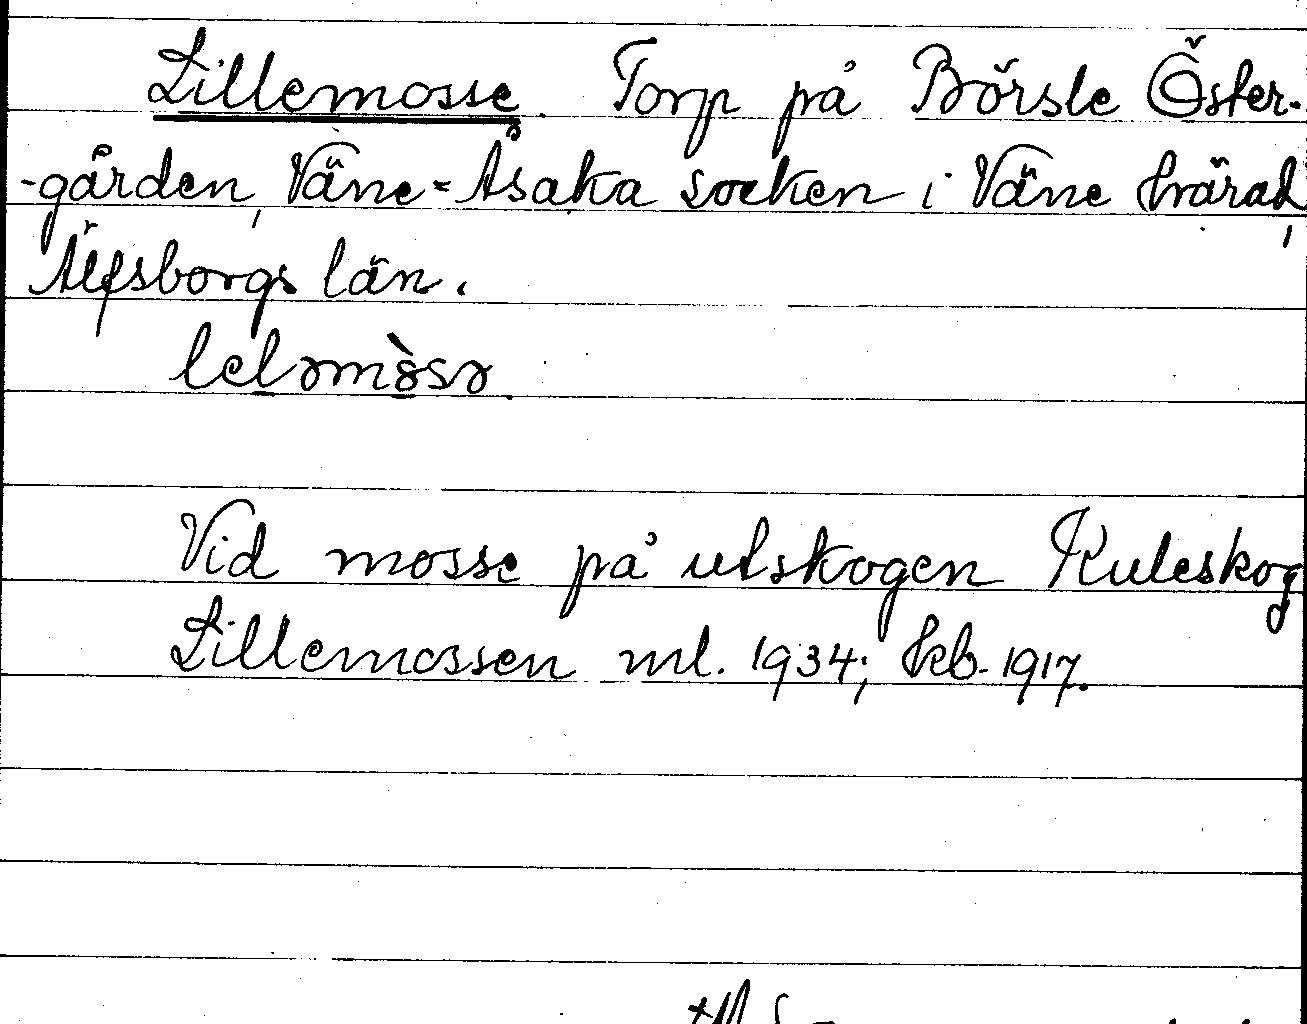 Lillemosse. Torp på Börsle Öster-
-gården, Väne-Åsaka socken i Väne härad,
Älfsborgs län.
leləmòsə
Vid mosse på utskogen Kuleskog
Lillemossen ml. 1934; kb. 1917.